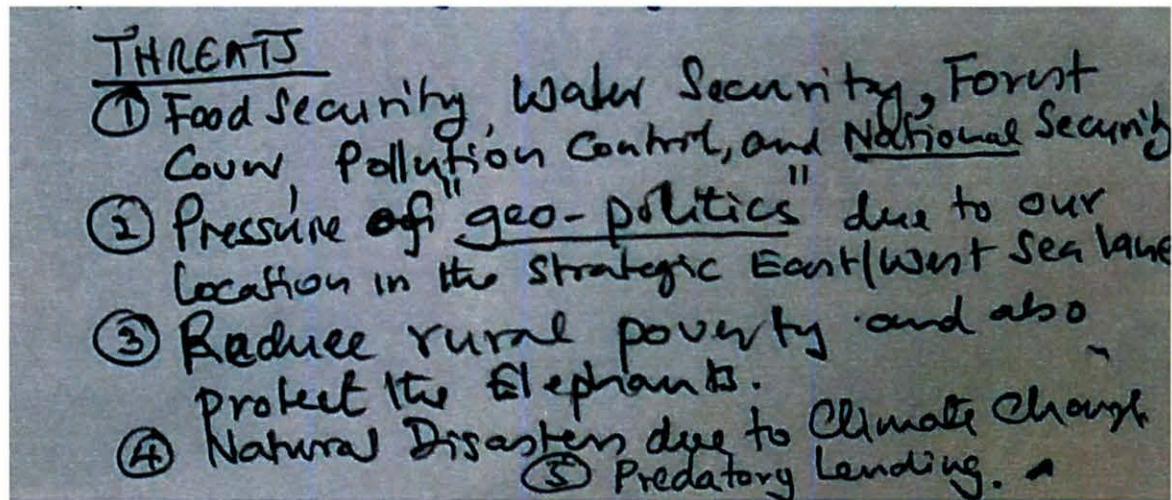 THREATS
① Food Security, Water Security, Forest
Cover, Pollution Control, and National Security
② Pressure of "geo-politics" due to our
location in the Strategic East/West Sea lane
③ Reduce rural poverty and also
protect the Elephants.
④ Natural Disasters due to Climate Change
⑤ Predatory Lending.